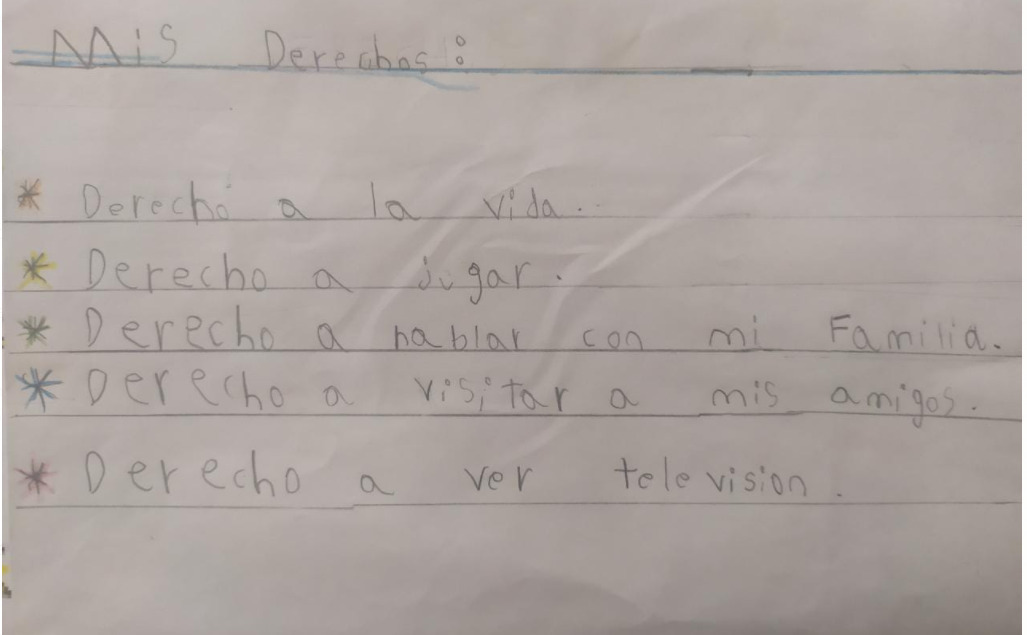 Mis Derechos:
* Derecho a la vida.
* Derecho a jugar.
* Derecho a hablar con mi Familia.
* Derecho a visitar a mis amigos.
* Derecho a ver television.